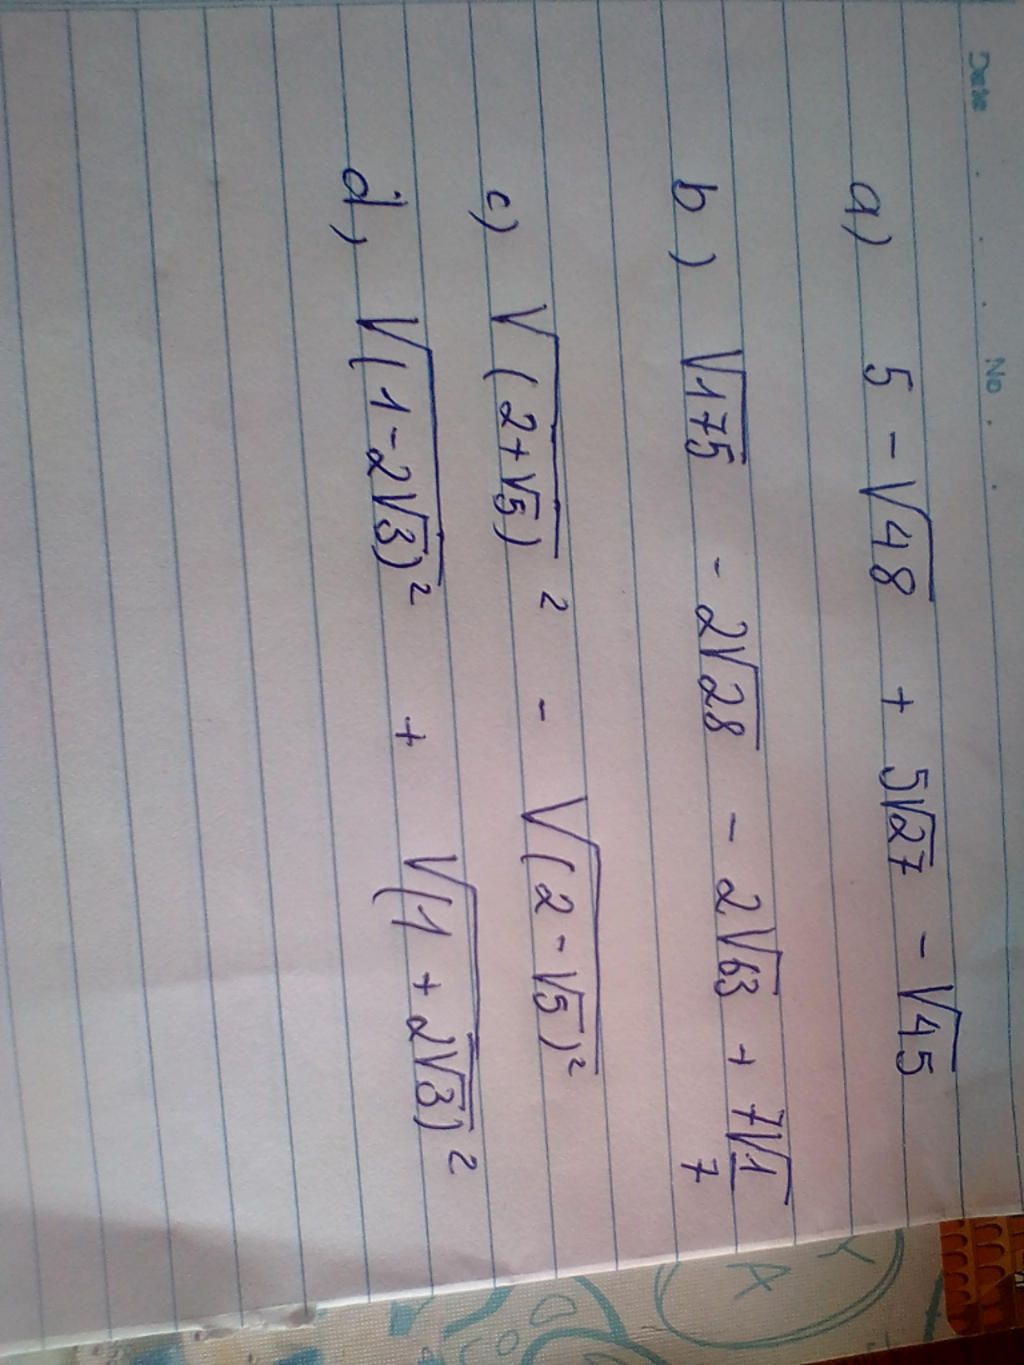 Date No
a) 5 - √48 + 5√27 - √45
b) √175 - 2√28 - 2√63 + 7√1/7
c) √(2+√5)² - √(2-√5)²
d, √(1-2√3)² + √(1+2√3)²